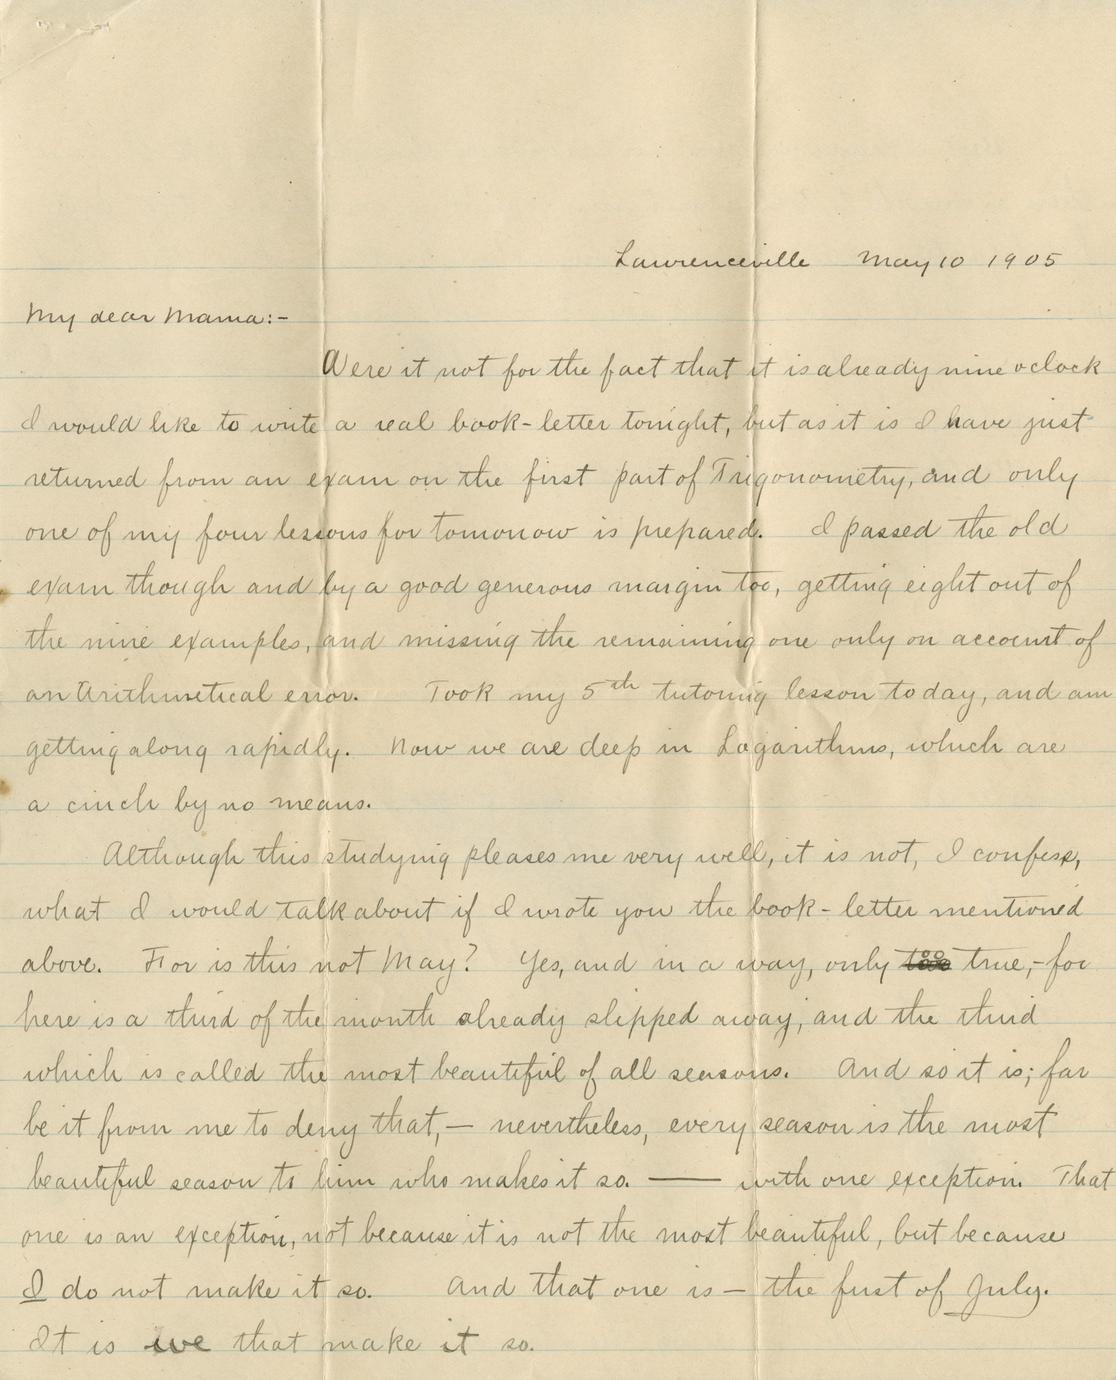 Lawrenceville May 10 1905
My dear Mama:-
Were it not for the fact that it is already nine oclock
I would like to write a real book-letter tonight, but as it is I have just
returned from an exam on the first part of Trigonometry, and only
one of my four lessons for tomorrow is prepared. I passed the old
exam though and by a good generous margin too, getting eight out of
the nine examples, and missing the remaining one only on account of
an Arithmetical error. Took my 5th tutoring lesson today, and am
getting along rapidly. Now we are deep in Logarithms, which are
a cinch by no means.
Although this studying pleases me very well, it is not, I confess,
what I would talk about if I wrote you the book-letter mentioned
above. For is this not May? Yes, and in a way, only too true,- for
here is a third of the month already slipped away, and the third
which is called the most beautiful of all seasons. And so it is; far
be it from me to deny that,— nevertheless, every season is the most
beautiful season to him who makes it so. —— with one exception. That
one is an exception, not because it is not the most beautiful, but because
I do not make it so. And that one is — the first of July.
It is we that make it so.